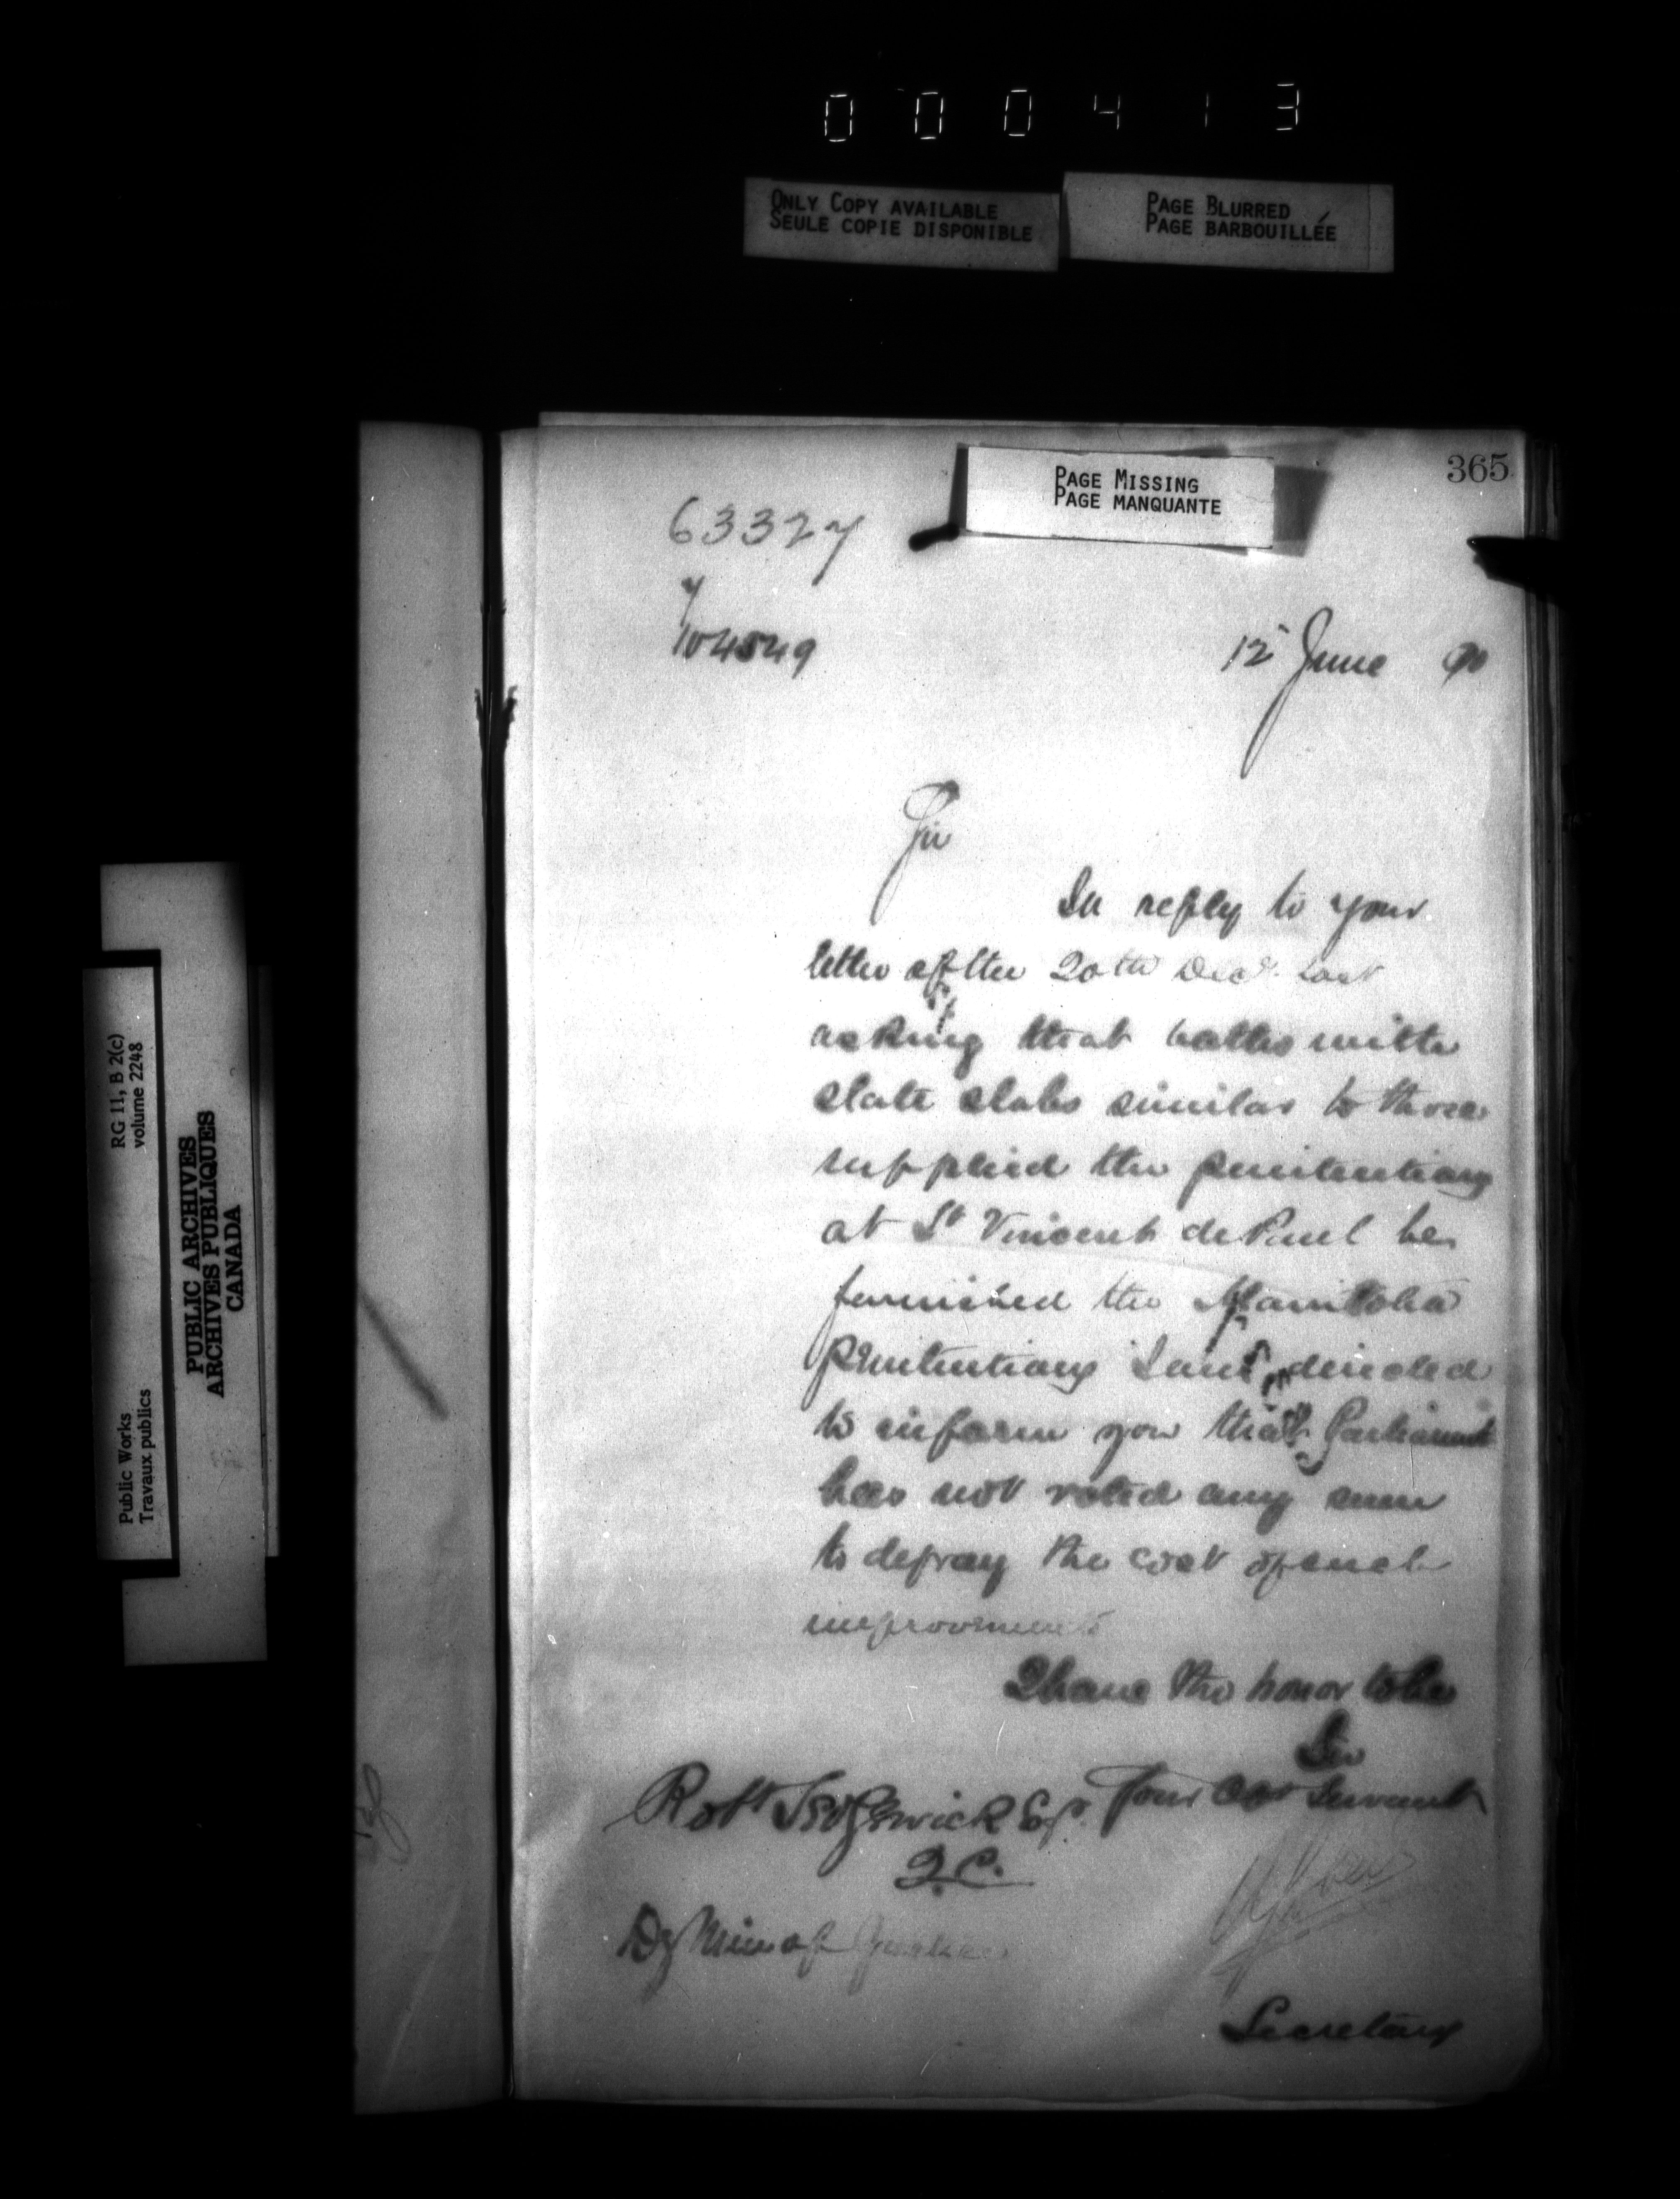 000413
ONLY COPY AVAILABLE
SEULE COPIE DISPONIBLE
PAGE BLURRED
PAGE BARBOUILLÉE
365
PAGE MISSING
PAGE MANQUANTE
63327
104549
12 June 90
Sir
In reply to your
letter of the 20th Decr. last
asking that baths with
slate slabs similar to those
supplied the penitentiary
at St Vincent de Paul be
furnished the Manitoba
Penitentiary I am directed
to inform you that Parliament
has not voted any sum
to defray the cost of such
improvements
I have the honor to be
Sir
Your Obt Servant
Robt Sedgewick Esq.
Q.C.
Dy Min of Justice
Secretary
Public Works
Travaux publics
RG 11, B 2(c)
volume 2248
PUBLIC ARCHIVES
ARCHIVES PUBLIQUES
CANADA